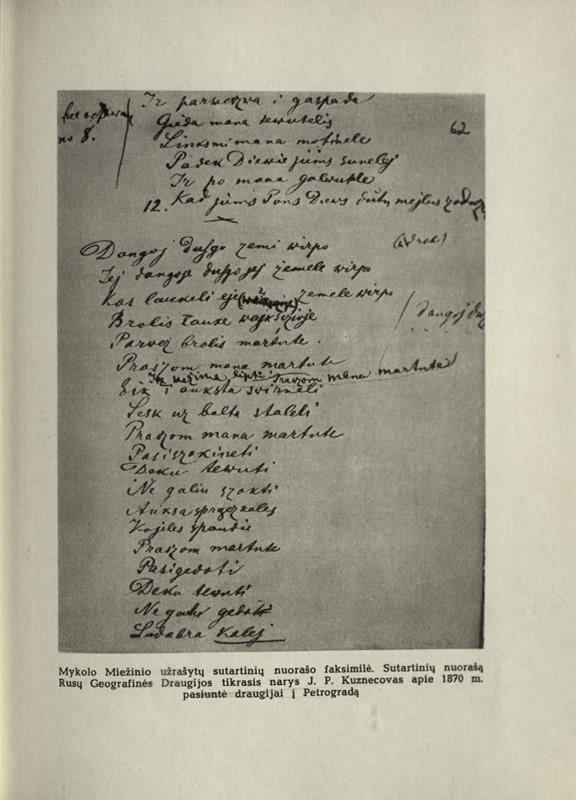 Ir parweszwa i gaspada
Gieda mana tewutelis
no 8.
62
Linksmi mana motinele
Padek Diewie jums sunelej
Ir po mana galwukle
12. Kad jums Pons Diews dutu mejlus
Dangoj dusgo zemi wirpo
Tej dangoje dusgo jej zemele wirpo
Kas laukeli eje zemele wirpo
Dangoj
Brolis lauke wajkszczioje
Parvez brolis martute.
Praszom mana martute
Praszom mana martute
Eik i auksta swirneli
Sesk uz balta staleli
Praszom mana martute
Pasiszokineti
Deku tewuti
Ne galiu szokti
Auksa sprgzkeles
Kojeles spaudie
Praszom martute
Pasigedoti
Deku tewuti
Ne galu gedoti
Sudabra Kalej
Mykolo Miežinio užrašytų sutartinių nuorašo faksimilė. Sutartinių nuorašą
Rusų Geografinės Draugijos tikrasis narys J. P. Kuznecovas apie 1870 m.
pasiuntė draugijai į Petrogradą